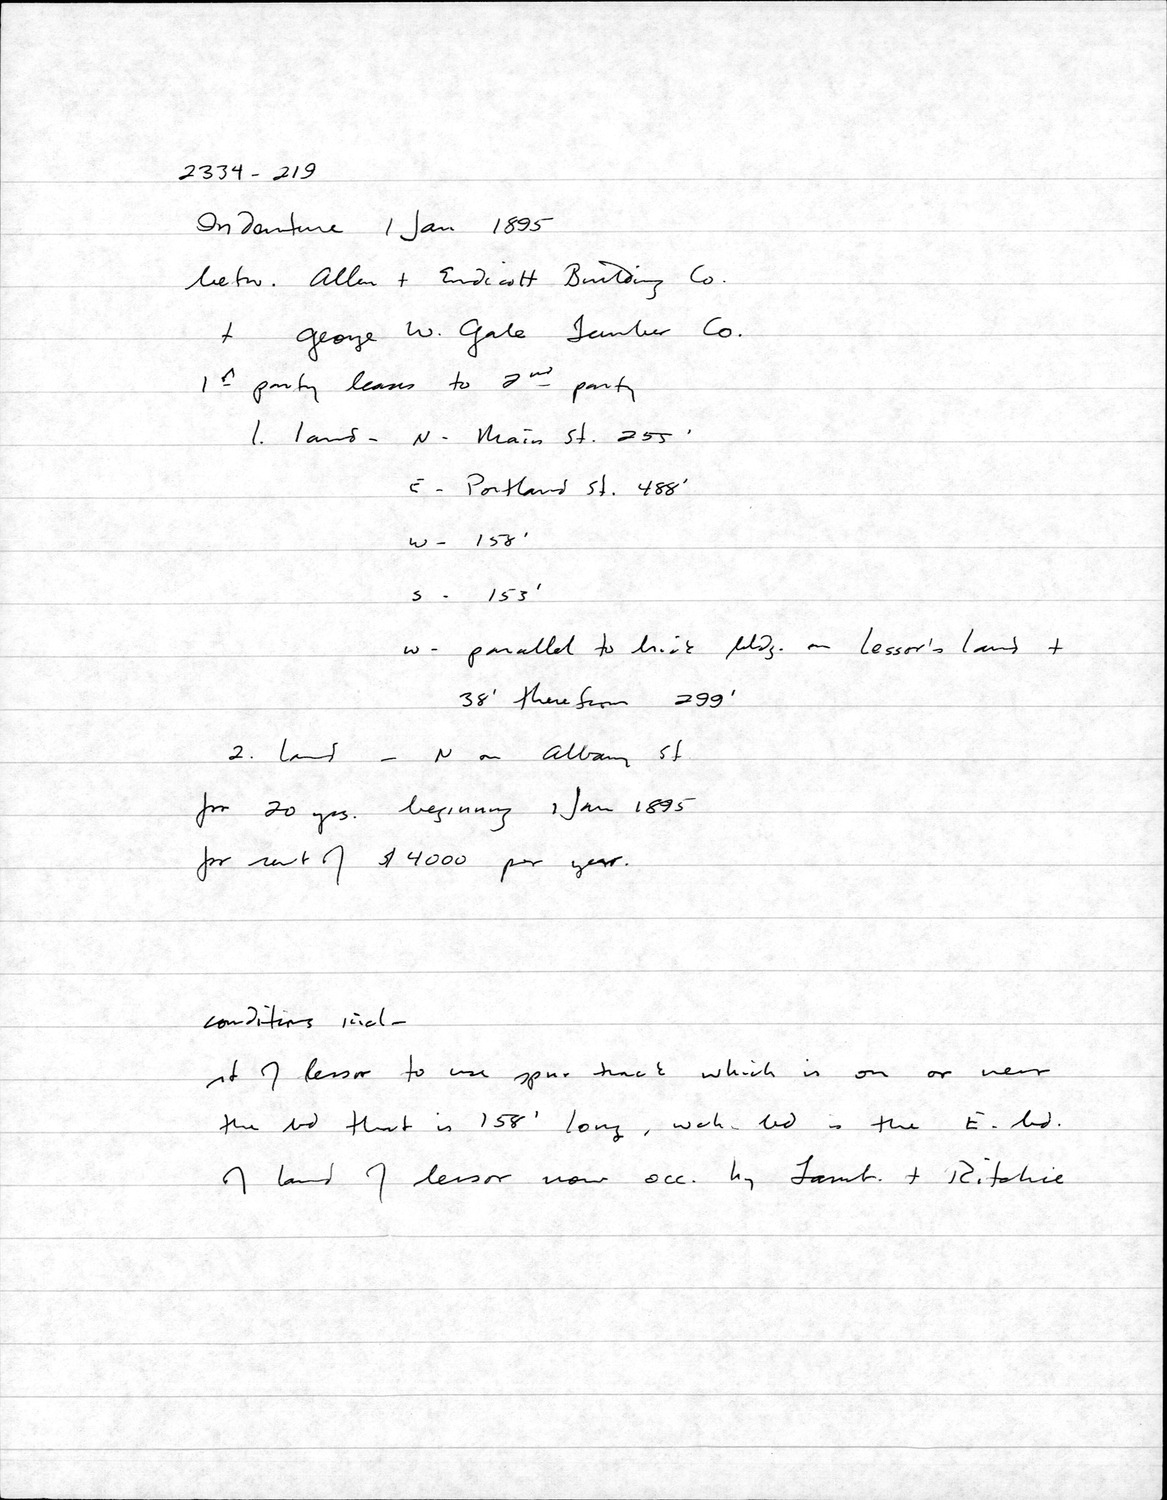 2334 - 219
Indenture 1 Jan 1895
betw. Allen + Endicott Building Co.
+ George W. Gale Lumber Co.
1st party leases to 2nd party
1. land - N - Main St. 255'
E - Portland St. 488'
W - 158'
S - 153'
W - parallel to brick bldg. on lessor's land +
38' therefrom 299'
2. land - N on Albany St
for 20 yrs. beginning 1 Jan 1895
for rent of $4000 per year.
conditions incl -
rt of lessor to use spur track which is on or near
the bd that is 158' long, wch. bd is the E. bd.
of land of lessor now occ. by Lamb. + Ritchie